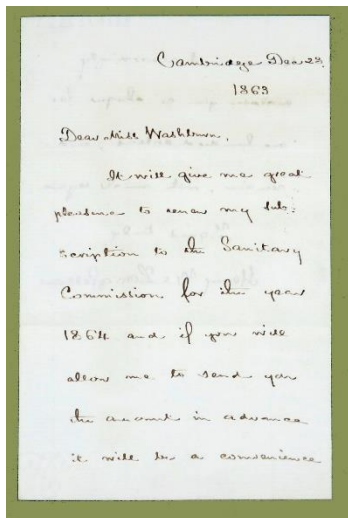 Cambridge Dec 23.
1863
Dear Miss Washburn,
It will give me great
pleasure to renew my sub-
scription to the Sanitary
Commission for the year
1864 and if you will
allow me to send you
the amount in advance
it will be a convenience